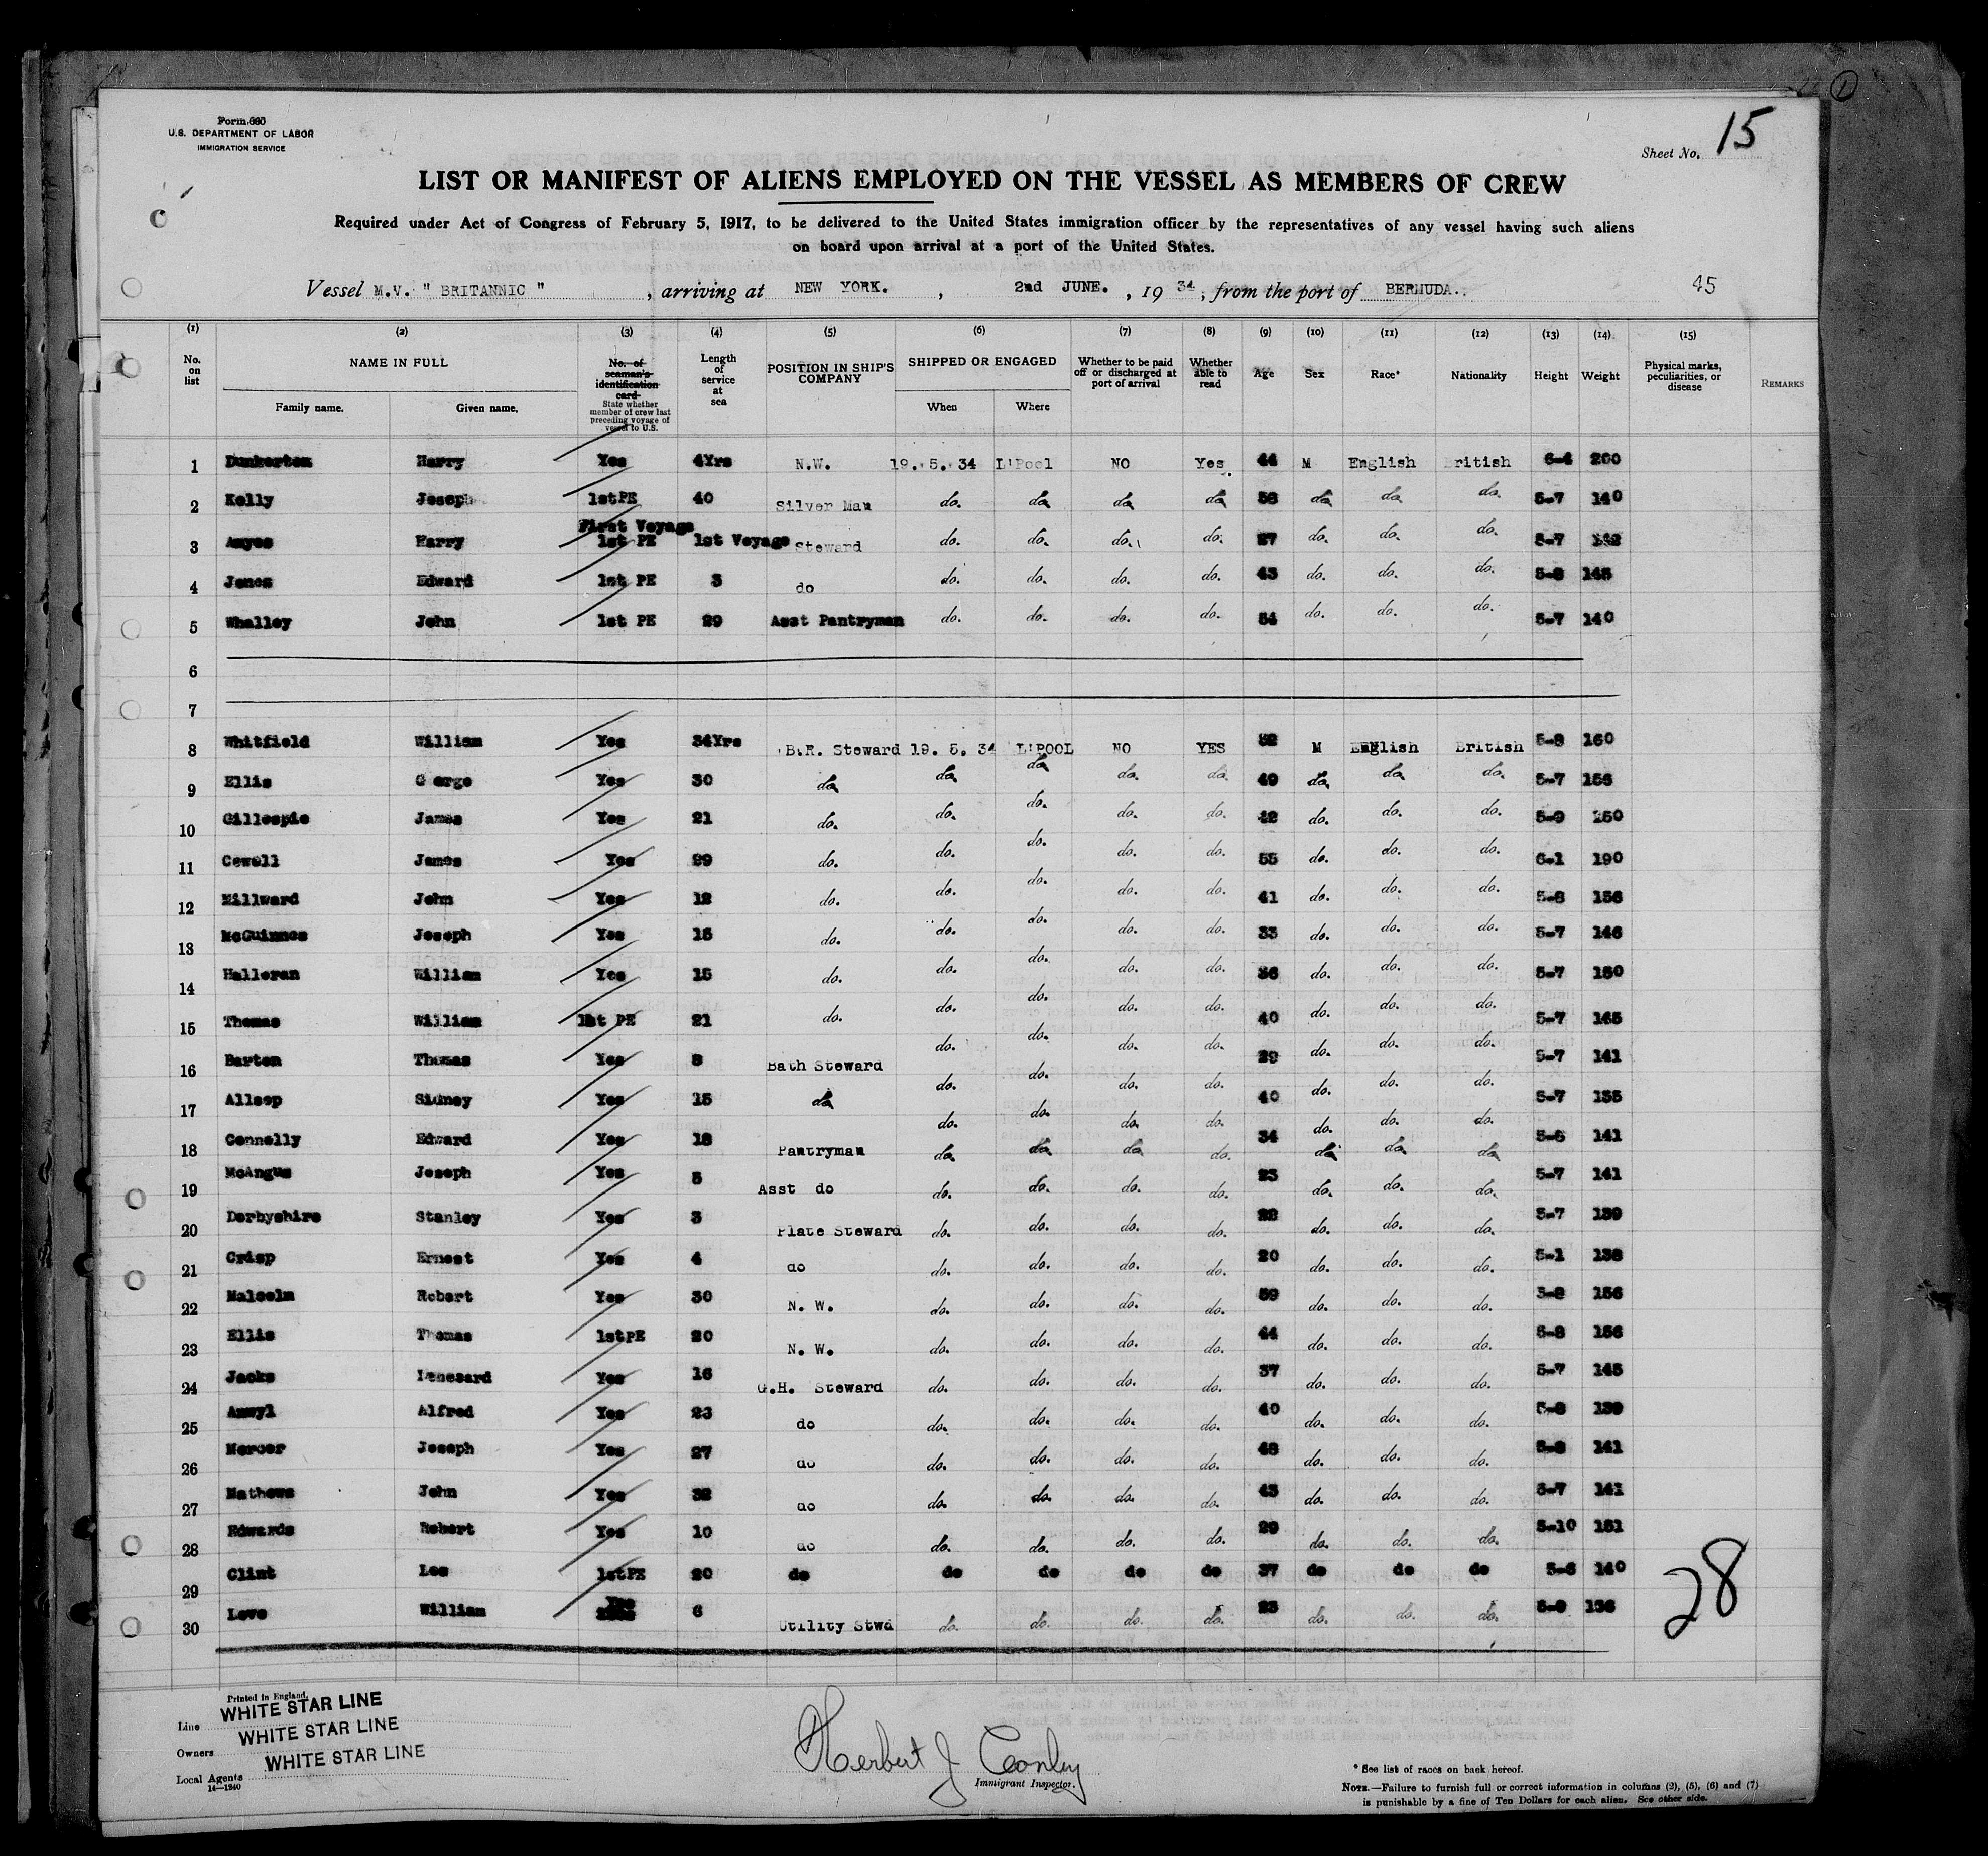 Form 680
U.S. DEPARTMENT OF LABOR
IMMIGRATION SERVICE
Sheet No. 15
LIST OR MANIFEST OF ALIENS EMPLOYED ON THE VESSEL AS MEMBERS OF CREW
Required under Act of Congress of February 5, 1917, to be delivered to the United States immigration officer by the representatives of any vessel having such aliens
on board upon arrival at a port of the United States.
Vessel M.V. " BRITANNIC ", arriving at NEW YORK. , 2nd JUNE. , 19 34, from the port of BERMUDA..
45
(1) (2) (3) (4) (5) (6) (7) (8) (9) (10) (11) (12) (13) (14) (15)
No. on list NAME IN FULL Family name. Given name. No. of seaman's identification card State whether member of crew last preceding voyage of vessel to U.S. Length of service at sea POSITION IN SHIP'S COMPANY SHIPPED OR ENGAGED When Where Whether to be paid off or discharged at port of arrival Whether able to read Age Sex Race* Nationality Height Weight Physical marks, peculiarities, or disease REMARKS
1 Dunkerton Harry Yes 4Yrs N.W. 19. 5. 34 L'Pool NO Yes 44 M English ritish 6-4 200
2 Kelly Joseph 1stPE 40 Silver Man do. do do do 58 do do do. 5-7 140
First Voyage
3 Harry 1st PE 1st Voyage Steward do. do. do. do. 27 do. do. do. 5-7
4 Jones Edward 1st PE 3 do do. do. do. do. 43 do. do. do. 5-8 145
5 Whalley John 1st PE 29 Asst Pantryman do. do. do. do. 54 do. do. do. 5-7 140
6
7
8 Whitfield William Yes 34Yrs B.R. Steward 19. 5. 34 L'POOL NO YES 52 M ENGlish British 5-8 160
9 Ellis G orge Yes 30 do do do do. do. 49 do. do do. 5-7 156
10 Gillespie James Yes 21 do. do. do. do. do. 42 do. do. do. 5-9
11 Cowell James Yes 29 do. do. do. do. do. 55 do. do. do. 6-1 190
12 Millward John Yes 12 do. do. do. do. do. 41 do. do. do. 5-8 156
13 McGuinnes Joseph Yes 15 do. do. do. do. do. 33 do. do. do. 5-7 146
14 Halloran William Yes 15 do. do. do. do. do. 36 do. do. do. 5-7 150
15 Thomas William 1st PE 21 do. do. do. do. do. 40 do. do. do. 5-7 165
16 Barton Thomas Yes 8 Bath Steward do. do. do. do. 29 do. do. do. 5-7 141
17 Allsop Sidney Yes 15 do do. do. do. do. 40 do. do. do. 5-7 135
18 Connolly Edward Yes 18 Pantryman do. do. do. do. 34 do. do. do. 5-6 141
19 McAngus Joseph Yes 5 Asst do do. do. do. do. 23 do. do. do. 5-7 141
20 Derbyshire Stanley Yes 3 Plate Steward do. do. do. do. 22 do. do. do. 5-7 139
21 Crisp Ernest Yes 4 do do. do. do. do. 20 do. do. do. 5-1 138
22 Malcolm Robert Yes 30 N. W. do. do. do. do. 59 do. do. do. 156
23 Ellis Thomas 1stPE 20 N. W. do. do. do. do. 44 do. do. do. 5-8 156
24 Jacks Yes 16 G.H. Steward do. do. do. do. 37 do. do. do. 5-7 145
25 Anwyl Alfred Yes 23 do do. do. do. do. 40 do. do. do. 5-8 139
26 Mercer Joseph Yes 27 do do. do. do. do. 48 do. do. do. 5-8 141
27 Mathews John Yes 32 do do. do. do. do. 43 do. do. do. 5-7 141
28 Edwards Robert Yes 10 do do. do. do. do. 29 do. do. do. 5-10 151
29 Clint Leo 1stPE 20 do do do do do 37 do do do 5-6 140
30 Love William Yes 6 Utility Stwd do. do. do. do. 23 do. do. do. 5-9 136
28
Printed in England.
Line WHITE STAR LINE
Owners WHITE STAR LINE
Local Agents WHITE STAR LINE
14—1240
Herbert J Conley
Immigrant Inspector.
* See list of races on back hereof.
NOTE.—Failure to furnish full or correct information in columns (2), (5), (6) and (7)
is punishable by a fine of Ten Dollars for each alien. See other side.